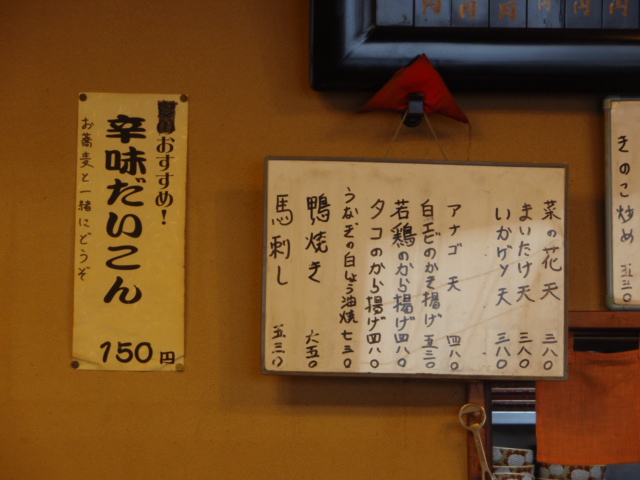 円 円 円 円 円 円
きのこ炒め 五三〇
菜の花天 三八〇
まいたけ天 三八〇
いかゲソ天 三八〇
アナゴ天 四八〇
白エビのかき揚げ 五三〇
若鶏のから揚げ 四八〇
タコのから揚げ 四八〇
うなぎの白しょう油焼 七三〇
鴨焼き 六五〇
馬刺し 五三〇
おすすめ!
辛味だいこん
お蕎麦と一緒にどうぞ
150円